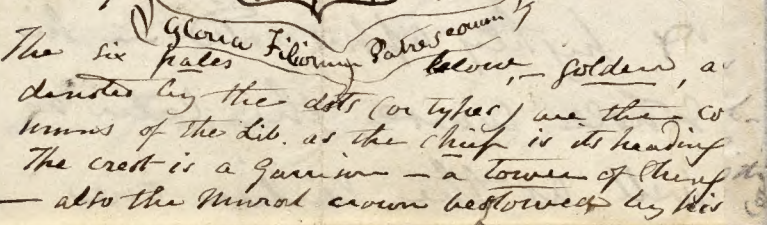 Gloria Filiorum Patres eorum
The six pales below, — golden, a
denoted by the dots (or types) are the co
lumns of the Lib. as the chief is its heading
The crest is a Garrison — a tower of
— also the Mural crown bestowed by his